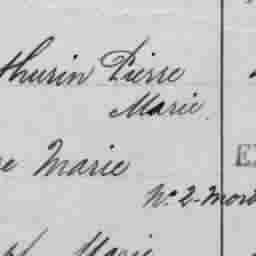 thurin Pierre
Marie
Marie
No 2. Mort
Marie